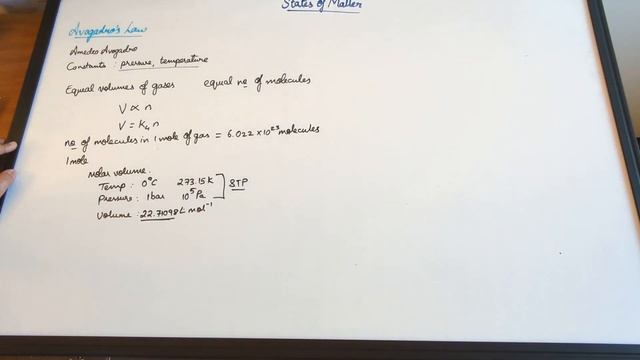 States of Matter
Avagadro's Law
Amedeo Avogadro
Constants : pressure, temperature
Equal volumes of gases equal no of molecules
V ∝ n
V = K₄ n
no of molecules in 1 mole of gas = 6.022 × 10²³ molecules
1 mole
molar volume.
Temp : 0°C 273.15 K
Pressure : 1 bar 10⁵ Pa
STP
Volume : 22.71098 L mol⁻¹